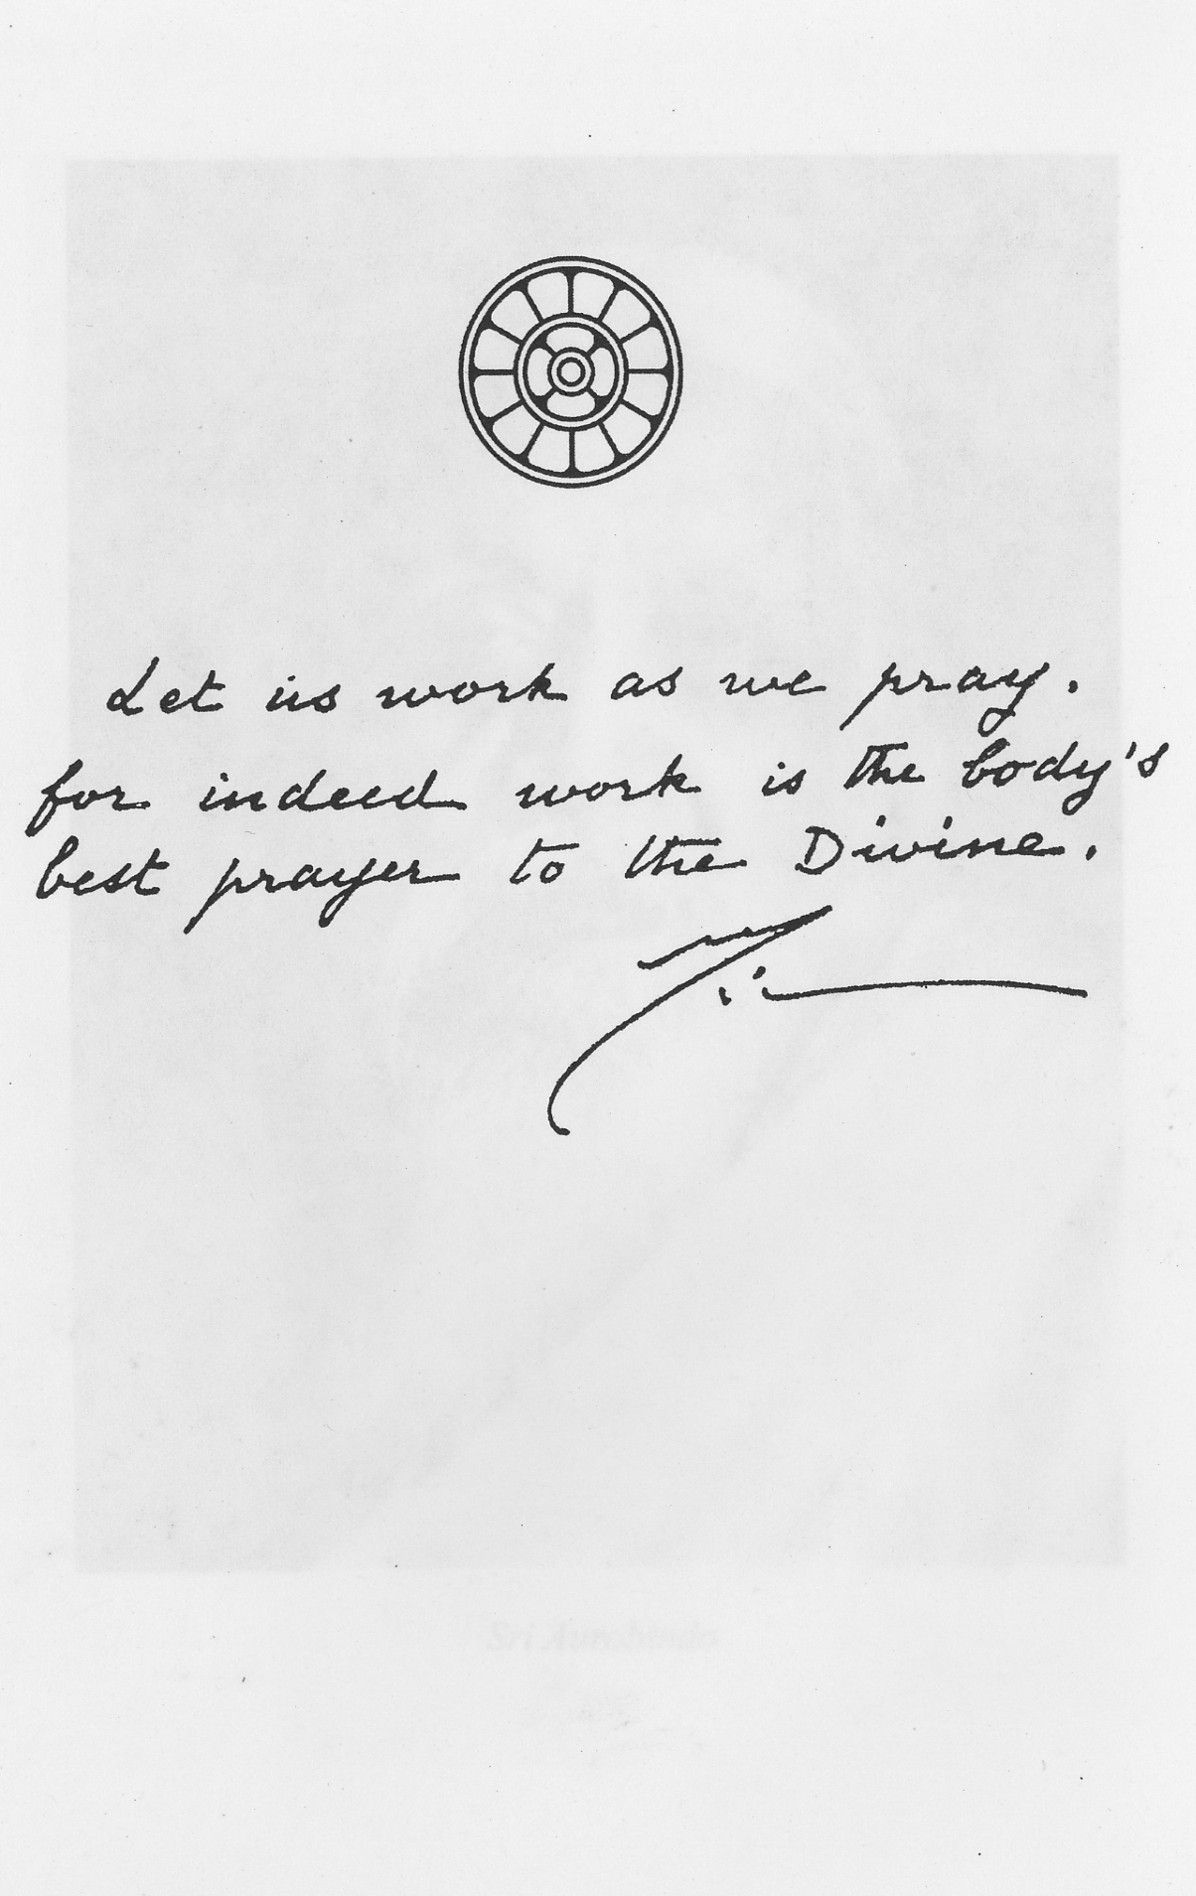 Let us work as we pray.
for indeed work is the body's
best prayer to the Divine.
Sri Aurobindo